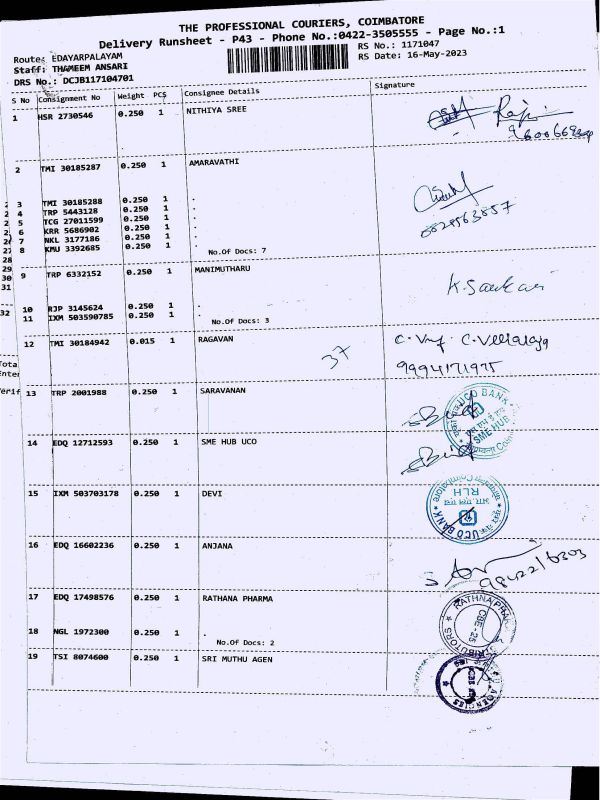 THE PROFESSIONAL COURIERS, COIMBATORE
Delivery Runsheet - P43 - Phone No.:0422-3505555 - Page No.:1
Route: EDAYARPALAYAM
RS No.: 1171047
Staff: THAMEEM ANSARI
RS Date: 16-May-2023
DRS No.: DCJB117104701
S No Consignment No Weight PCS Consignee Details Signature
1 HSR 2730546 0.250 1 NITHIYA SREE
2 TMI 30185287 0.250 1 AMARAVATHI
3 TMI 30185288 0.250 1 .
4 TRP 5443128 0.250 1 .
5 TCG 27011599 0.250 1 .
6 KRR 5686902 0.250 1 .
7 NKL 3177186 0.250 1 .
8 KMU 3392685 0.250 1 .
No.Of Docs: 7
9 TRP 6332152 0.250 1 MANIMUTHARU
K. Sankari
10 RJP 3145624 0.250 1 .
11 IXM 503590785 0.250 1 .
No.Of Docs: 3
12 TMI 30184942 0.015 1 RAGAVAN
37
9994171975
13 TRP 2001988 0.250 1 SARAVANAN
UCO BANK
SME HUB
14 EDQ 12712593 0.250 1 SME HUB UCO
15 IXM 503703178 0.250 1 DEVI
RLH
UCO BANK
16 EDQ 16602236 0.250 1 ANJANA
9842216303
17 EDQ 17498576 0.250 1 RATHANA PHARMA
18 NGL 1972300 0.250 1 .
No.Of Docs: 2
CBE-25
19 TSI 8074600 0.250 1 SRI MUTHU AGEN
AGENCIES
28
29
30
31
32